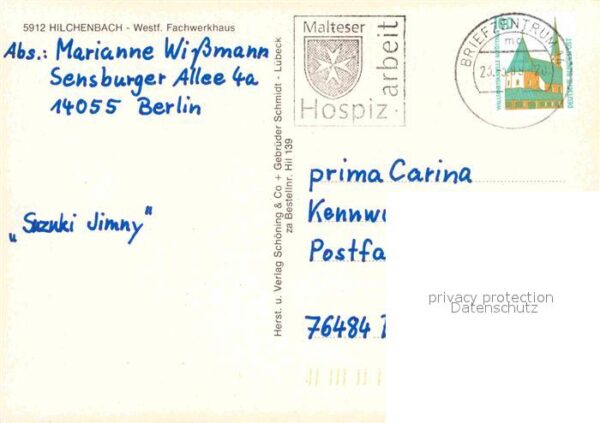 5912 HILCHENBACH - Westf. Fachwerkhaus
Abs.: Marianne Wißmann
Sensburger Allee 4a
14055 Berlin
„Suzuki Jimny"
Herst. u. Verlag Schöning & Co + Gebrüder Schmidt - Lübeck
za Bestellnr. Hil 139
Malteser
Hospiz
arbeit
BRIEFZENTRUM
prima Carina
Kennw
Postfa
76484
privacy protection
Datenschutz
DEUTSCHE BUNDESPOST